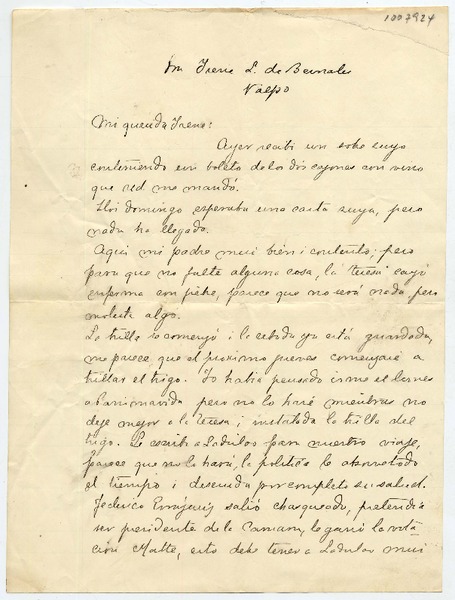 1007924
Sra Irene L. de Bernales
Valpo
Mi querida Irene:
Ayer recibi un sobre suyo
conteniendo un boleto de los dos cajones con vino
que ud me mandó.
Hoi domingo esperaba una carta suya, pero
nada ha llegado.
Aqui mi padre mui bien i contento; pero
para que no falte alguna cosa, la Teresa cayó
enferma con fiebre, parece que no será nada pero
molesta algo.
La trilla se comenzó i la cebada ya está guardada,
me parece que el proximo jueves comenzaré a
trillar el trigo. Yo habia pensado irme el lunes
a pero no lo haré mientras no
deje mejor a la Teresa i instalada la trilla del
trigo. Le escribi a Ladislao para nuestro viaje,
parece que no lo hará, la politica le absorve todo
el tiempo i descuida por completo su salud.
Federico Errázuriz salió chasqueado, pretendia
ser presidente de la Camara, le ganó la vota
cion Matte, esto debe tener a Ladislao mui